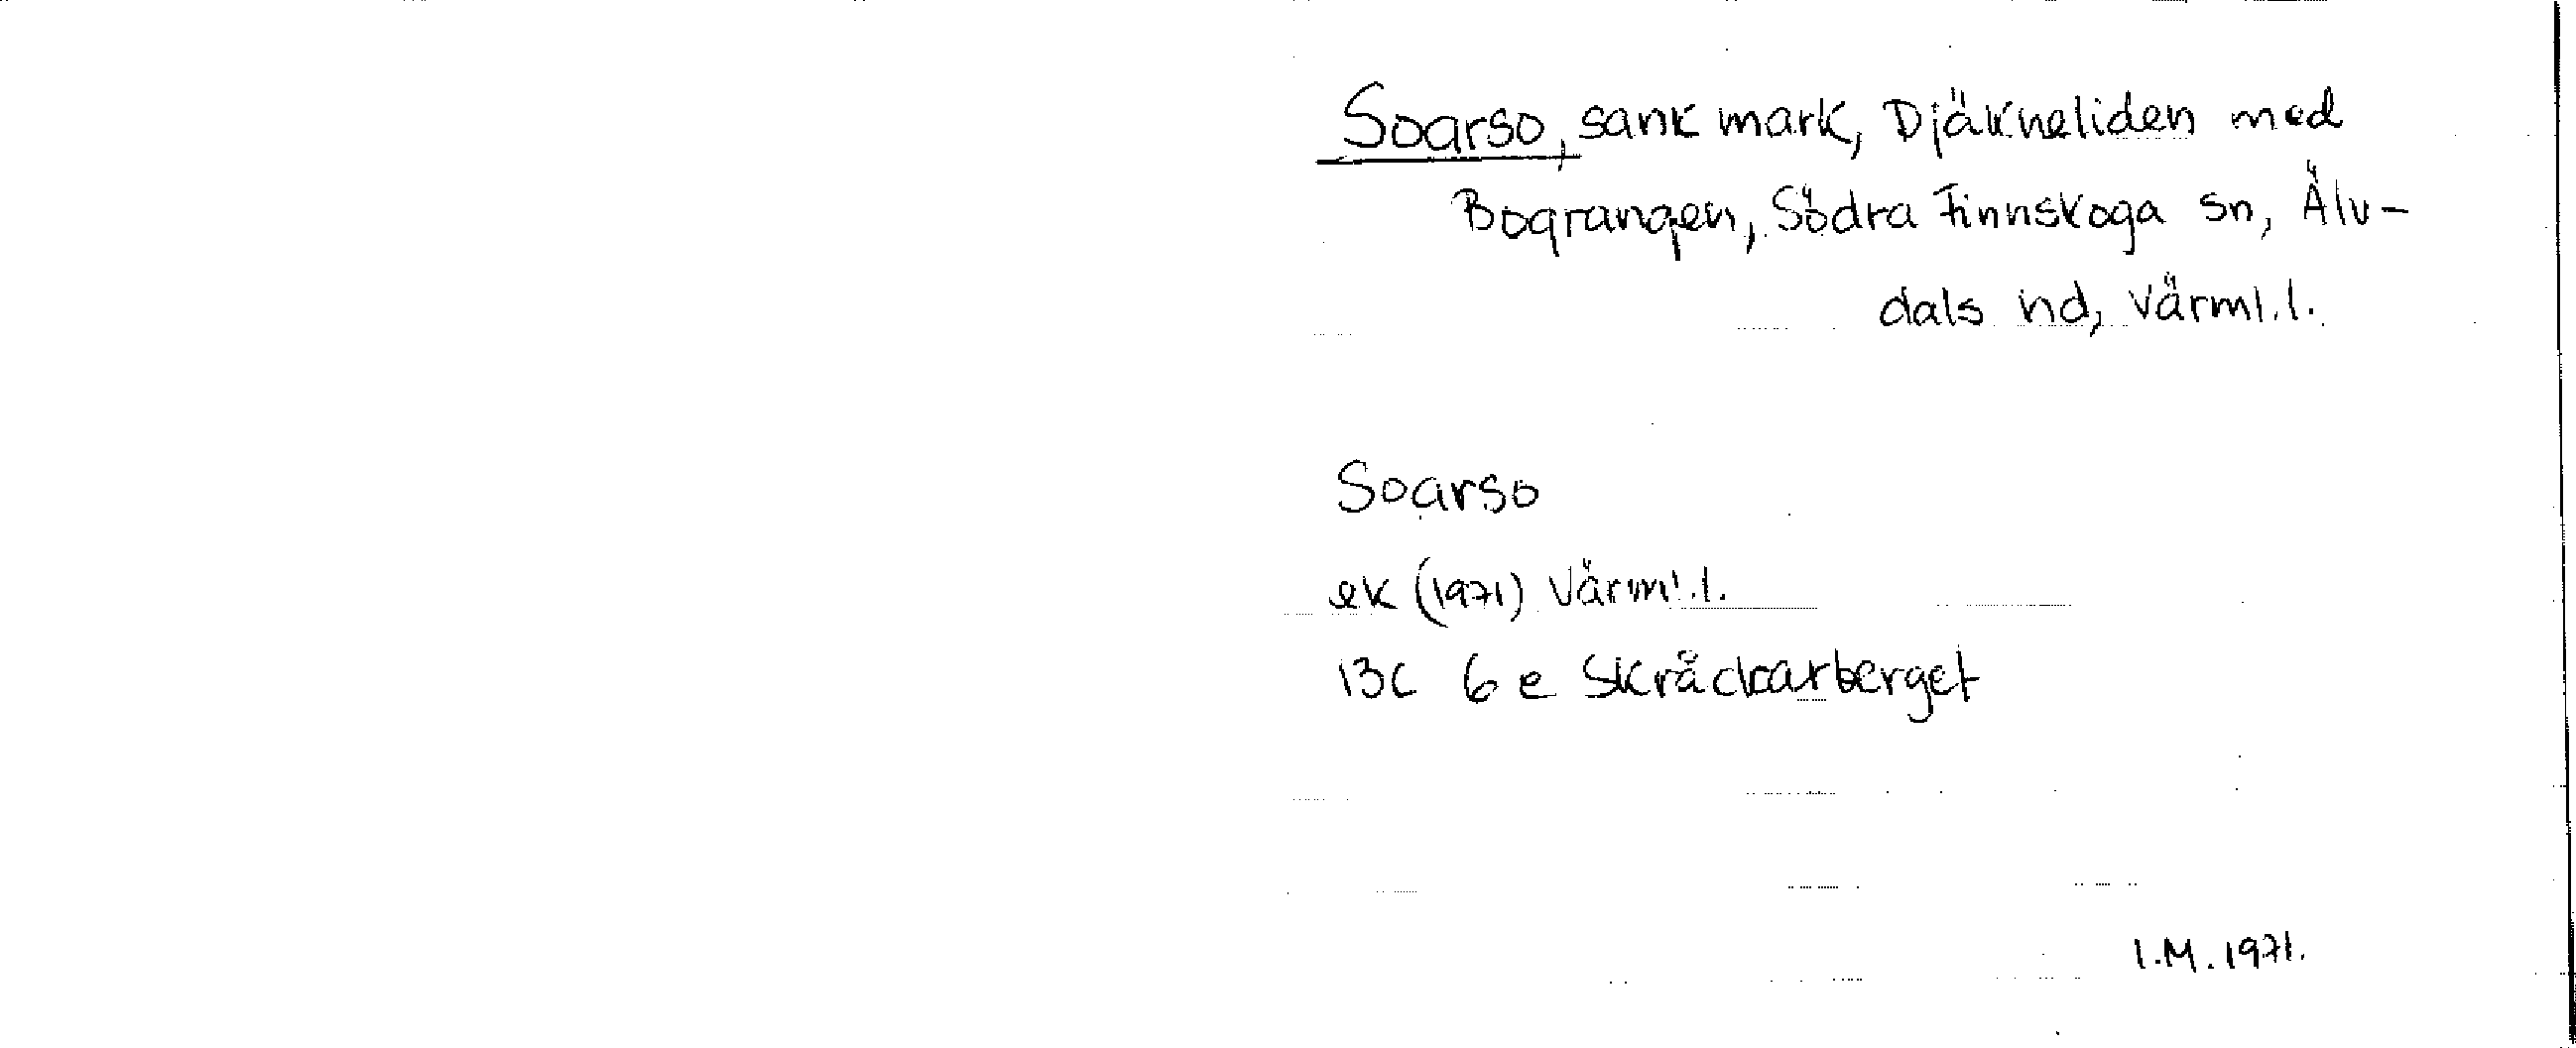 Soarso, sank mark, Djäkneliden med
Bograngen, Södra Finnskoga sn, Älv-
dals hd, Värml.l.
Soarso
ek (1971) Värml.l.
13C 6e Skråckarberget
I.M. 1971.